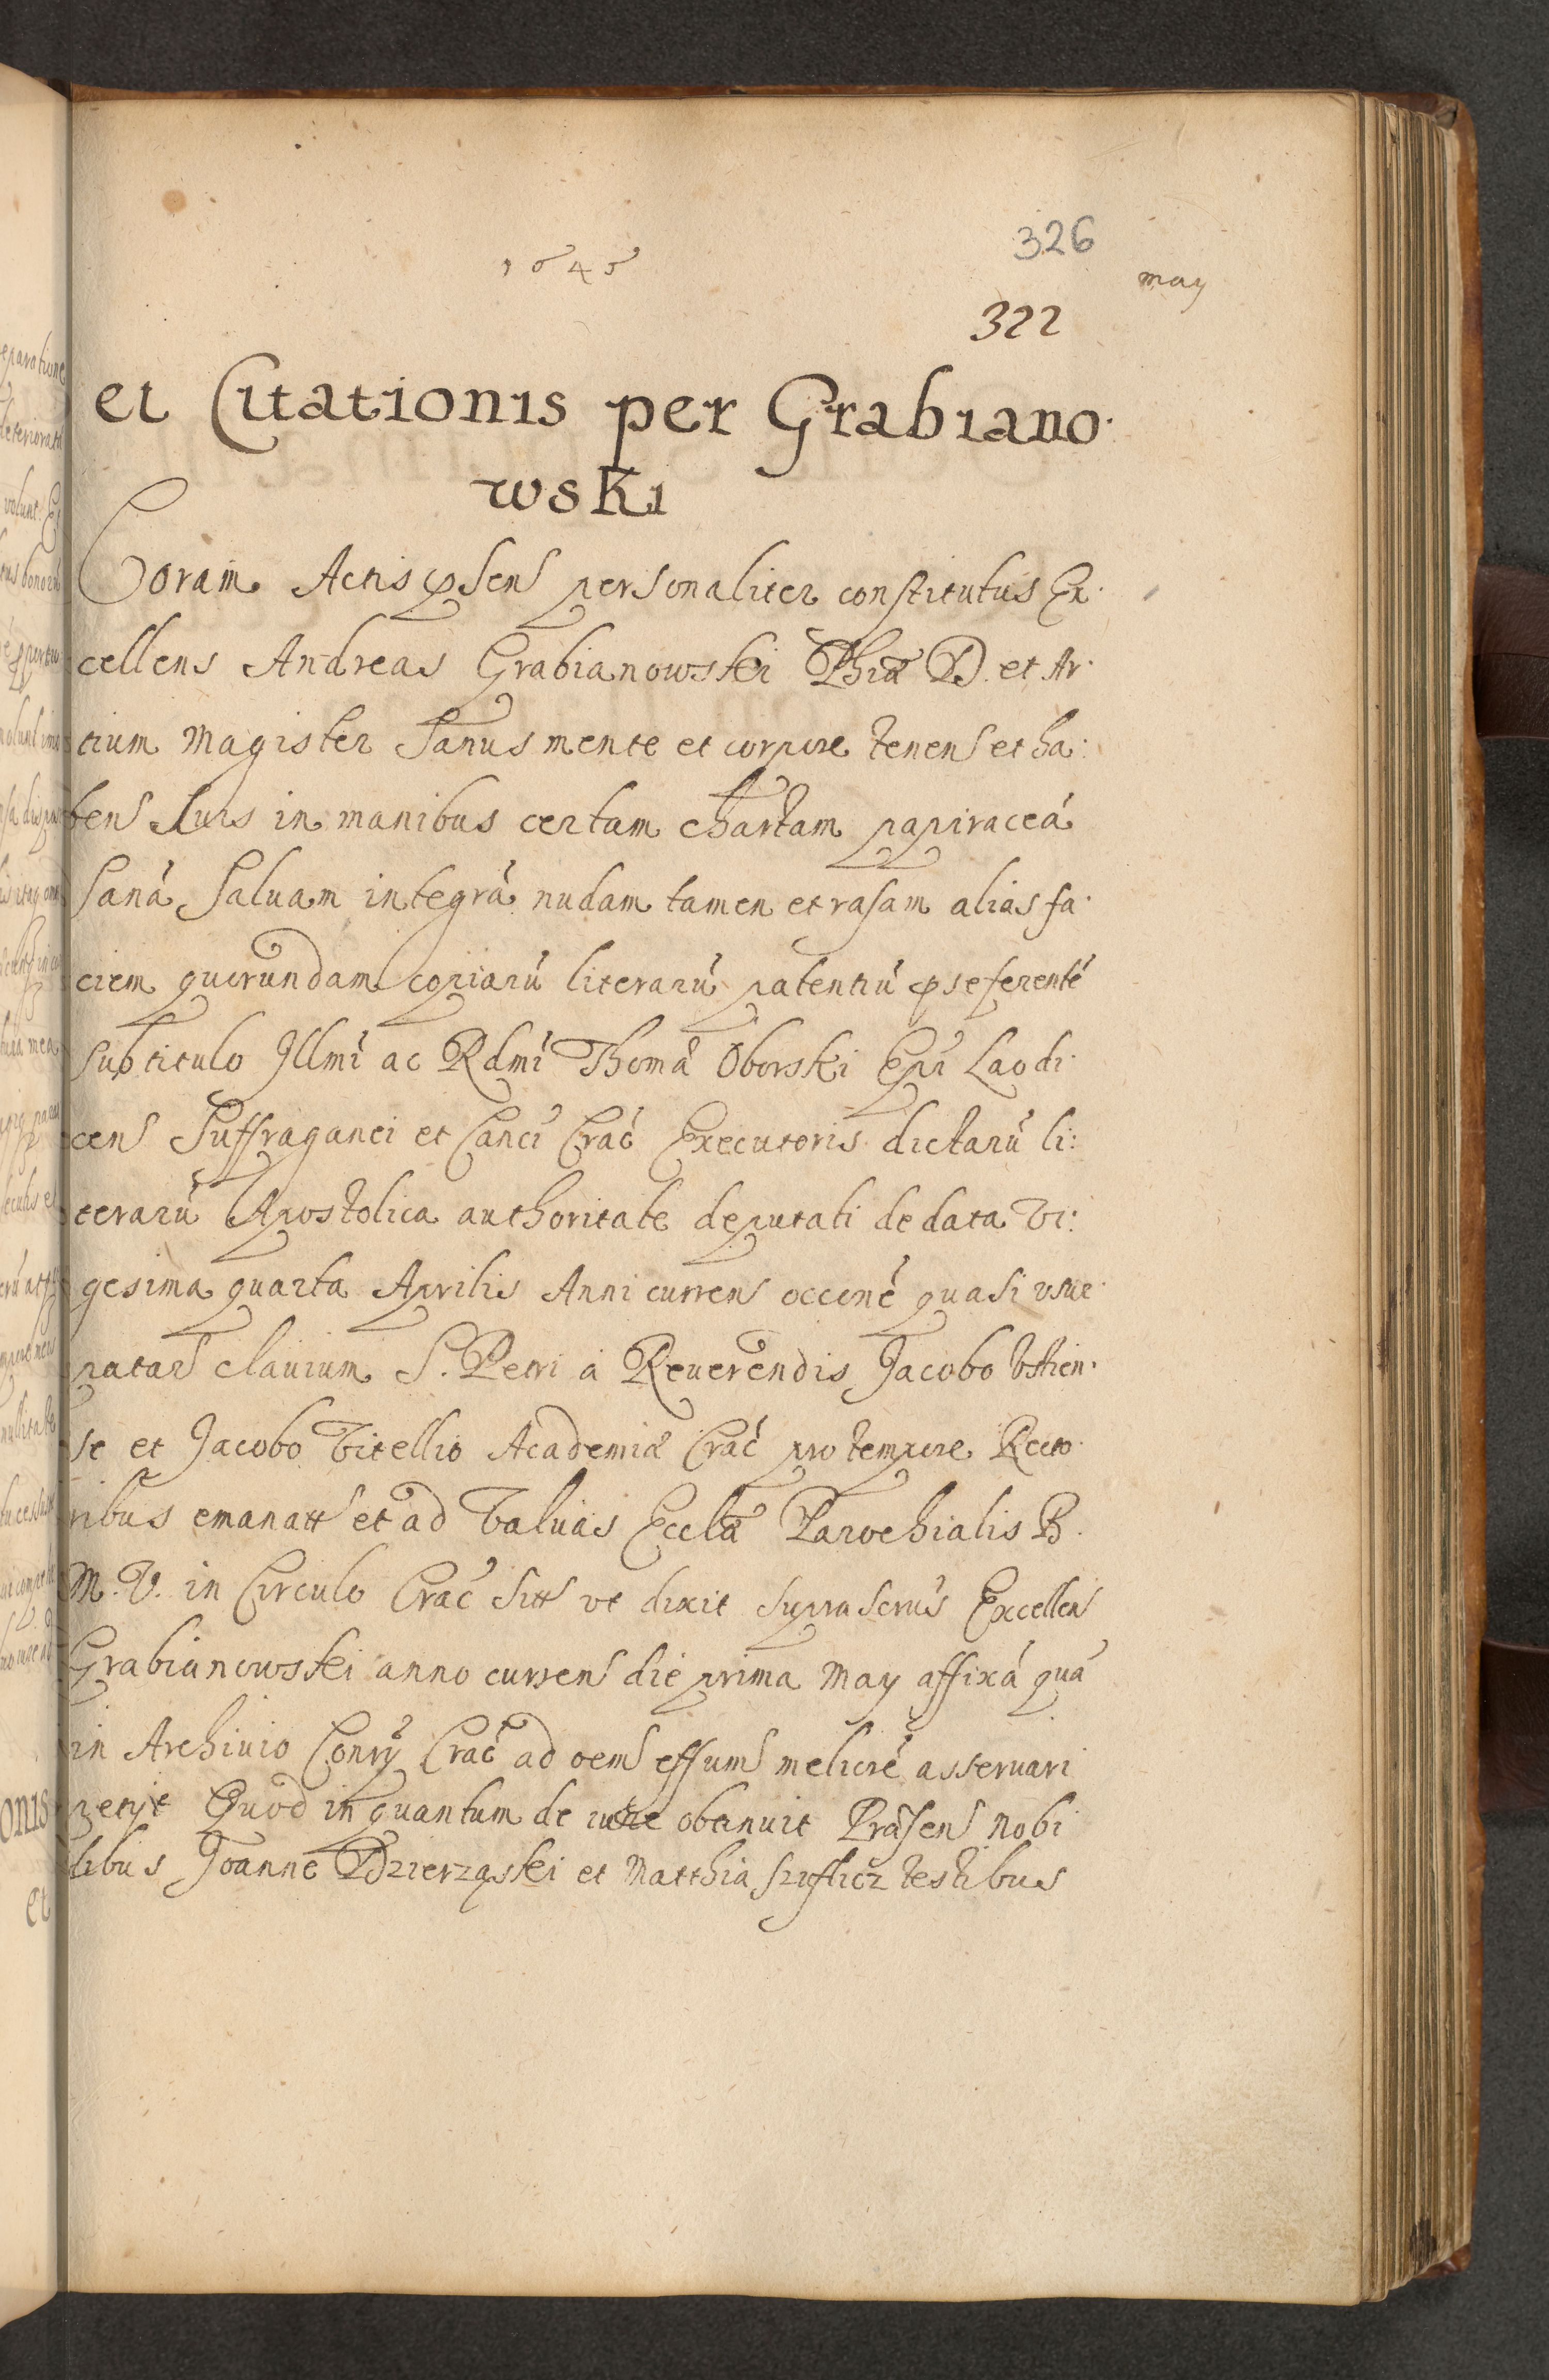 326
1645
may
322
et Citationis per Grabiano·
wski
Coram Actis pñsens personaliter constitutus Ex·
cellens Andreas Grabianowski Phiæ D. et Ar·
tium Magister Sanus mente et corpore tenens et ha:
bens suis in manibus certam chartam papiraceá
Saná Saluam integrá nudam tamen et rasam alias fa·
ciem quorundam copiarú literarú patentiú præseferenté
Sub titulo Jllmi ac Rdmi Thomæ Oborski Epi Laodi·
cens Suffraganei et Canci Crac Executoris dictarú li:
terarú Apostolica authoritate deputati de data vi:
gesima quarta Aprilis Anni currens occone quasi usur·
patar clauium S. Petri á Reuerendis Jacobo Ustien·
se et Jacobo Vitellio Academiæ Crac pro tempore Recto·
ribus emanatt et ad Valuas Eccla Parochialis B.
M. V. in Circulo Crac Sitt ut dixit supra scrus Excellens
Grabianowski anno currens die prima May affixá quá
in Archiuio Conry Crac ad oem effum meliore asseruari
petyt Quod in quantum de iure obtinuit Præsens Nobi
libus Joanne Dzierząski et Matthia testibus